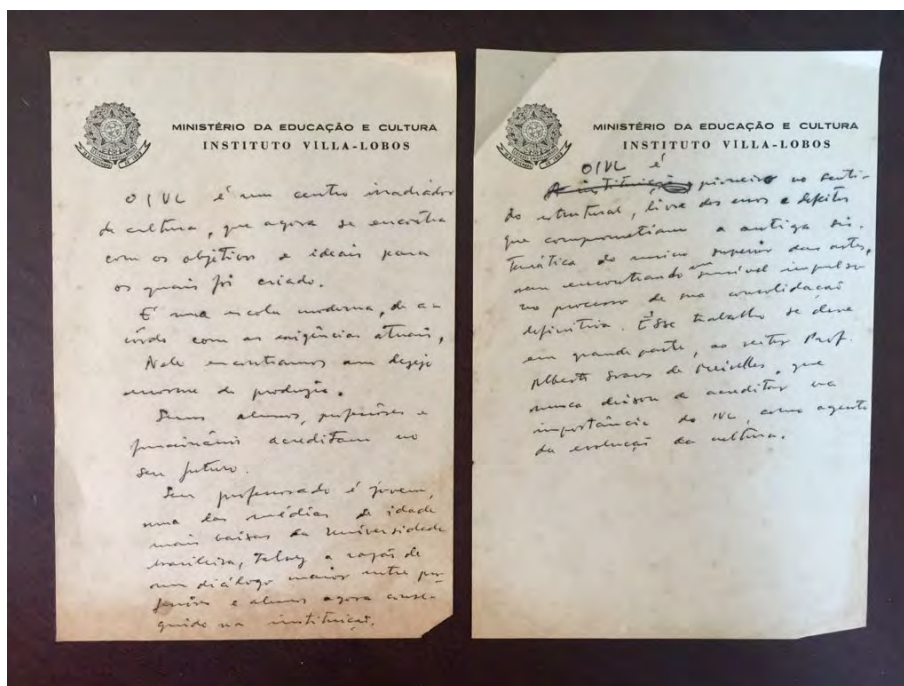 MINISTÉRIO DA EDUCAÇÃO E CULTURA
INSTITUTO VILLA-LOBOS
O IVL é um centro irradiador
de cultura, que agora se encontra
com os objetivos e ideais para
os quais foi criado.
É uma escola moderna, de a
côrdo com as exigências atuais,
Nele encontramos um desejo
enorme de produção.
Seus alunos, professôres e
funcionários acreditam no
seu futuro.
Seu professorado é jovem,
uma das médias de idade
mais baixas da Universidade
brasileira, Talvez a razão de
um diálogo maior entre pro-
fessôres e alunos agora conse-
guido na instituição.
MINISTÉRIO DA EDUCAÇÃO E CULTURA
INSTITUTO VILLA-LOBOS
O IVL é
A instituição pioneiro no senti-
do estrutural, livre dos erros e defeitos
que comprometiam a antiga sis-
temática do ensino superior das artes,
vem encontrando um sensível impulso
no processo de sua consolidação
definitiva. Êsse trabalho se deve
em grande parte, ao reitor Prof.
Alberto Soares de Meirelles, que
nunca deixou de acreditar na
importância do IVL, como agente
da evolução da cultura.